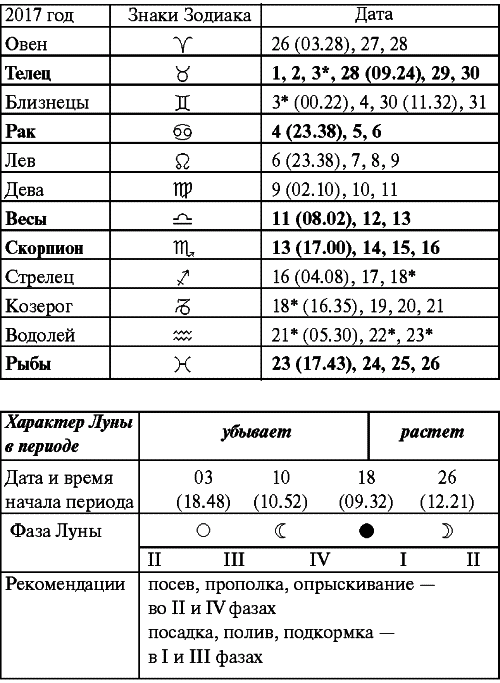 2017 год Знаки Зодиака Дата
Овен ♈ 26 (03.28), 27, 28
Телец ♉ 1, 2, 3*, 28 (09.24), 29, 30
Близнецы ♊ 3* (00.22), 4, 30 (11.32), 31
Рак ♋ 4 (23.38), 5, 6
Лев ♌ 6 (23.38), 7, 8, 9
Дева ♍ 9 (02.10), 10, 11
Весы ♎ 11 (08.02), 12, 13
Скорпион ♏ 13 (17.00), 14, 15, 16
Стрелец ♐ 16 (04.08), 17, 18*
Козерог ♑ 18* (16.35), 19, 20, 21
Водолей ♒ 21* (05.30), 22*, 23*
Рыбы ♓ 23 (17.43), 24, 25, 26
Характер Луны
в периоде
убывает растет
Дата и время 03 10 18 26
начала периода (18.48) (10.52) (09.32) (12.21)
Фаза Луны ○ ☾ ● ☽
II III IV I II
Рекомендации посев, прополка, опрыскивание —
во II и IV фазах
посадка, полив, подкормка —
в I и III фазах